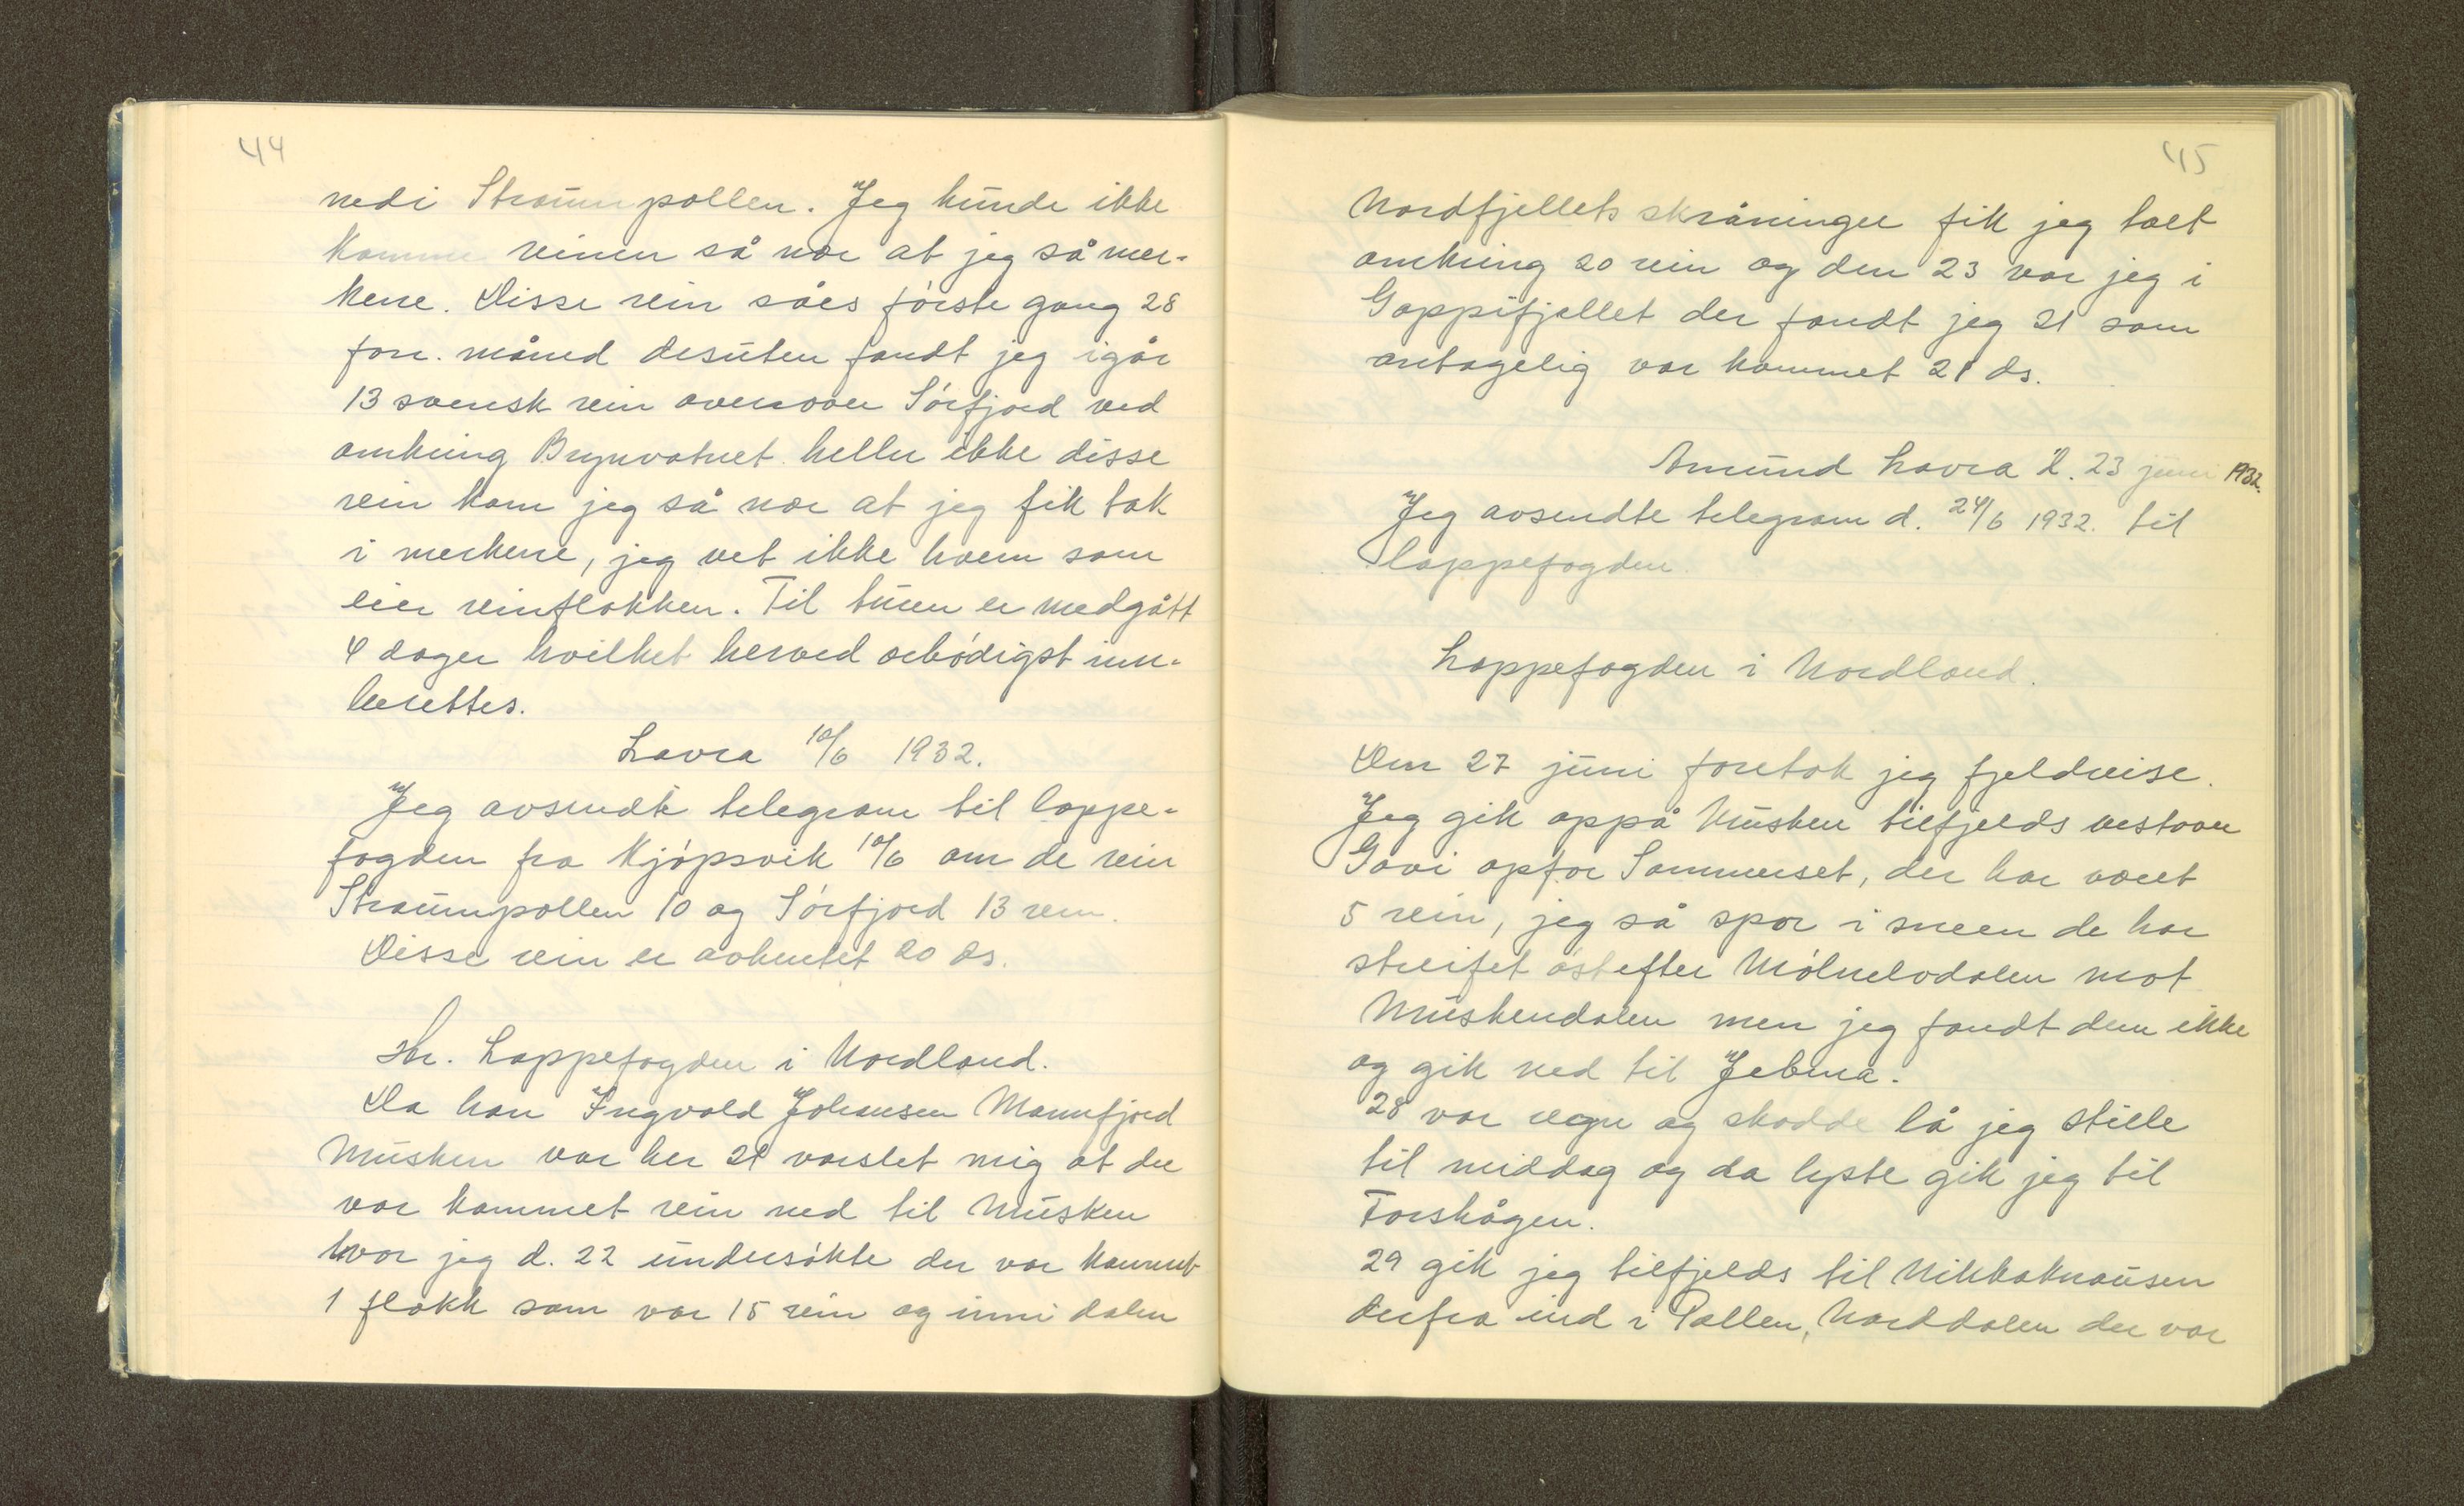 44
nedi Straumpollen. Jeg kunde ikke
komme reinen så nær at jeg så mer-
kene. Disse rein såes første gang 28
forr. måned desuten fandt jeg igår
13 svensk rein ovenover Sørfjord ved
omkring Brynvatnet heller ikke disse
rein kom jeg så nær at jeg fik tak
i merkene, jeg vet ikke hvem som
eier reinflokken. Til turen er medgått
4 dager hvilket herved ærbødigst inn-
berettes.
Lavra 10/6 1932.
Jeg avsendte telegram til lappe-
fogden fra Kjøpsvik 10/6 om de rein
Straumpollen 10 og Sørfjord 13 rein.
Disse rein er avhentet 20 ds.
Hr. Lappefogden i Nordland.
Da han Ingvald Johansen Mannfjord
Musken var her 21 varslet mig at der
var kommet rein ned til Musken
hvor jeg d. 22 undersøkte der var kommet
1 flokk som var 15 rein og inni dalen
45
Nordfjellets skråninger fik jeg talt
omkring 20 rein og den 23 var jeg i
Gappifjellet der fandt jeg 21 som
antagelig var kommet 21 ds.
Amund Lavra d. 23 juni 1932.
Jeg avsendte telegram d. 24/6 1932. til
lappefogden.
Lappefogden i Nordland.
Den 27 juni foretok jeg fjeldreise.
Jeg gik oppå Musken tilfjelds vestover
Gavi opfor Sommerset, der har været
5 rein, jeg så spor i sneen de har
streifet østefter Mølnelvdalen mot
Muskendalen men jeg fandt dem ikke
og gik ned til Jebma.
28 var regn og skodde lå jeg stille
til middag og da lyste gik jeg til
Forshågen.
29 gik jeg tilfjelds til Nikkaknausen
derfra ind i Pollen, Norddalen der var